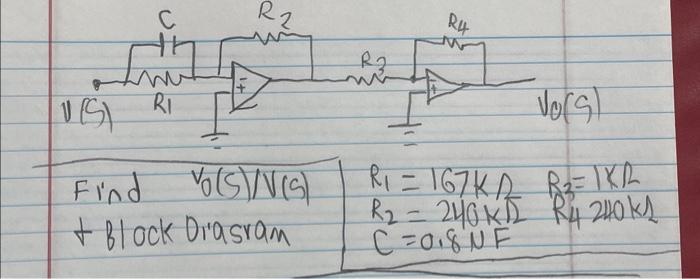 C
R2
R4
R3
R1
V(S)
Vo(S)
Find Vo(S)/V(S)
+ Block Diagram
R1 = 167KΩ R3 = 1KΩ
R2 = 240KΩ R4 240kΩ
C = 0.8 NF